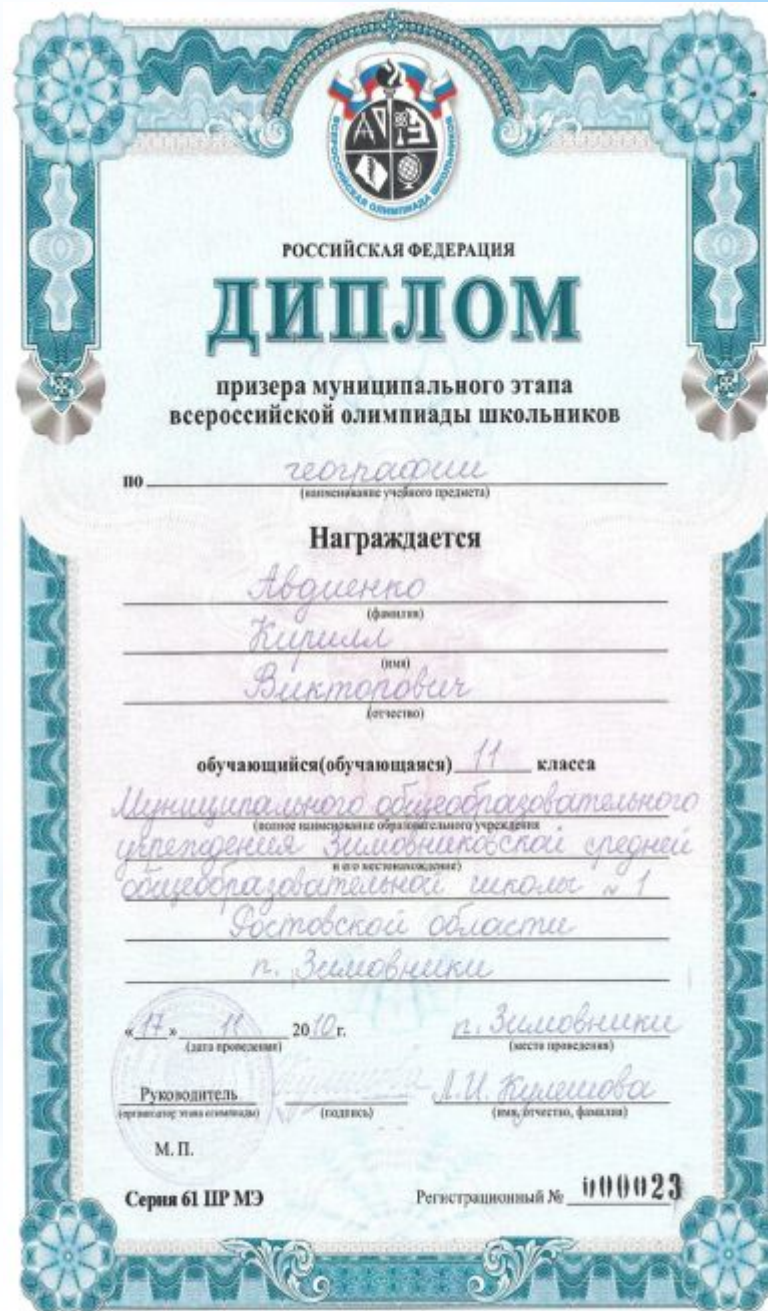 ВСЕРОССИЙСКАЯ ОЛИМПИАДА ШКОЛЬНИКОВ
РОССИЙСКАЯ ФЕДЕРАЦИЯ
ДИПЛОМ
призера муниципального этапа
всероссийской олимпиады школьников
по географии
(наименование учебного предмета)
Награждается
Авдиенко
(фамилия)
Кирилл
(имя)
Викторович
(отчество)
обучающийся(обучающаяся) 11 класса
Муниципального общеобразовательного
(полное наименование образовательного учреждения
учреждения Зимовниковской средней
и его местонахождение)
общеобразовательной школы № 1
Ростовской области
п. Зимовники
«17» 11 2010 г. п. Зимовники
(дата проведения) (место проведения)
Руководитель Л.И. Кулешова
(организатор этапа олимпиады) (подпись) (имя, отчество, фамилия)
М. П.
Серия 61 ПР МЭ Регистрационный № 000023